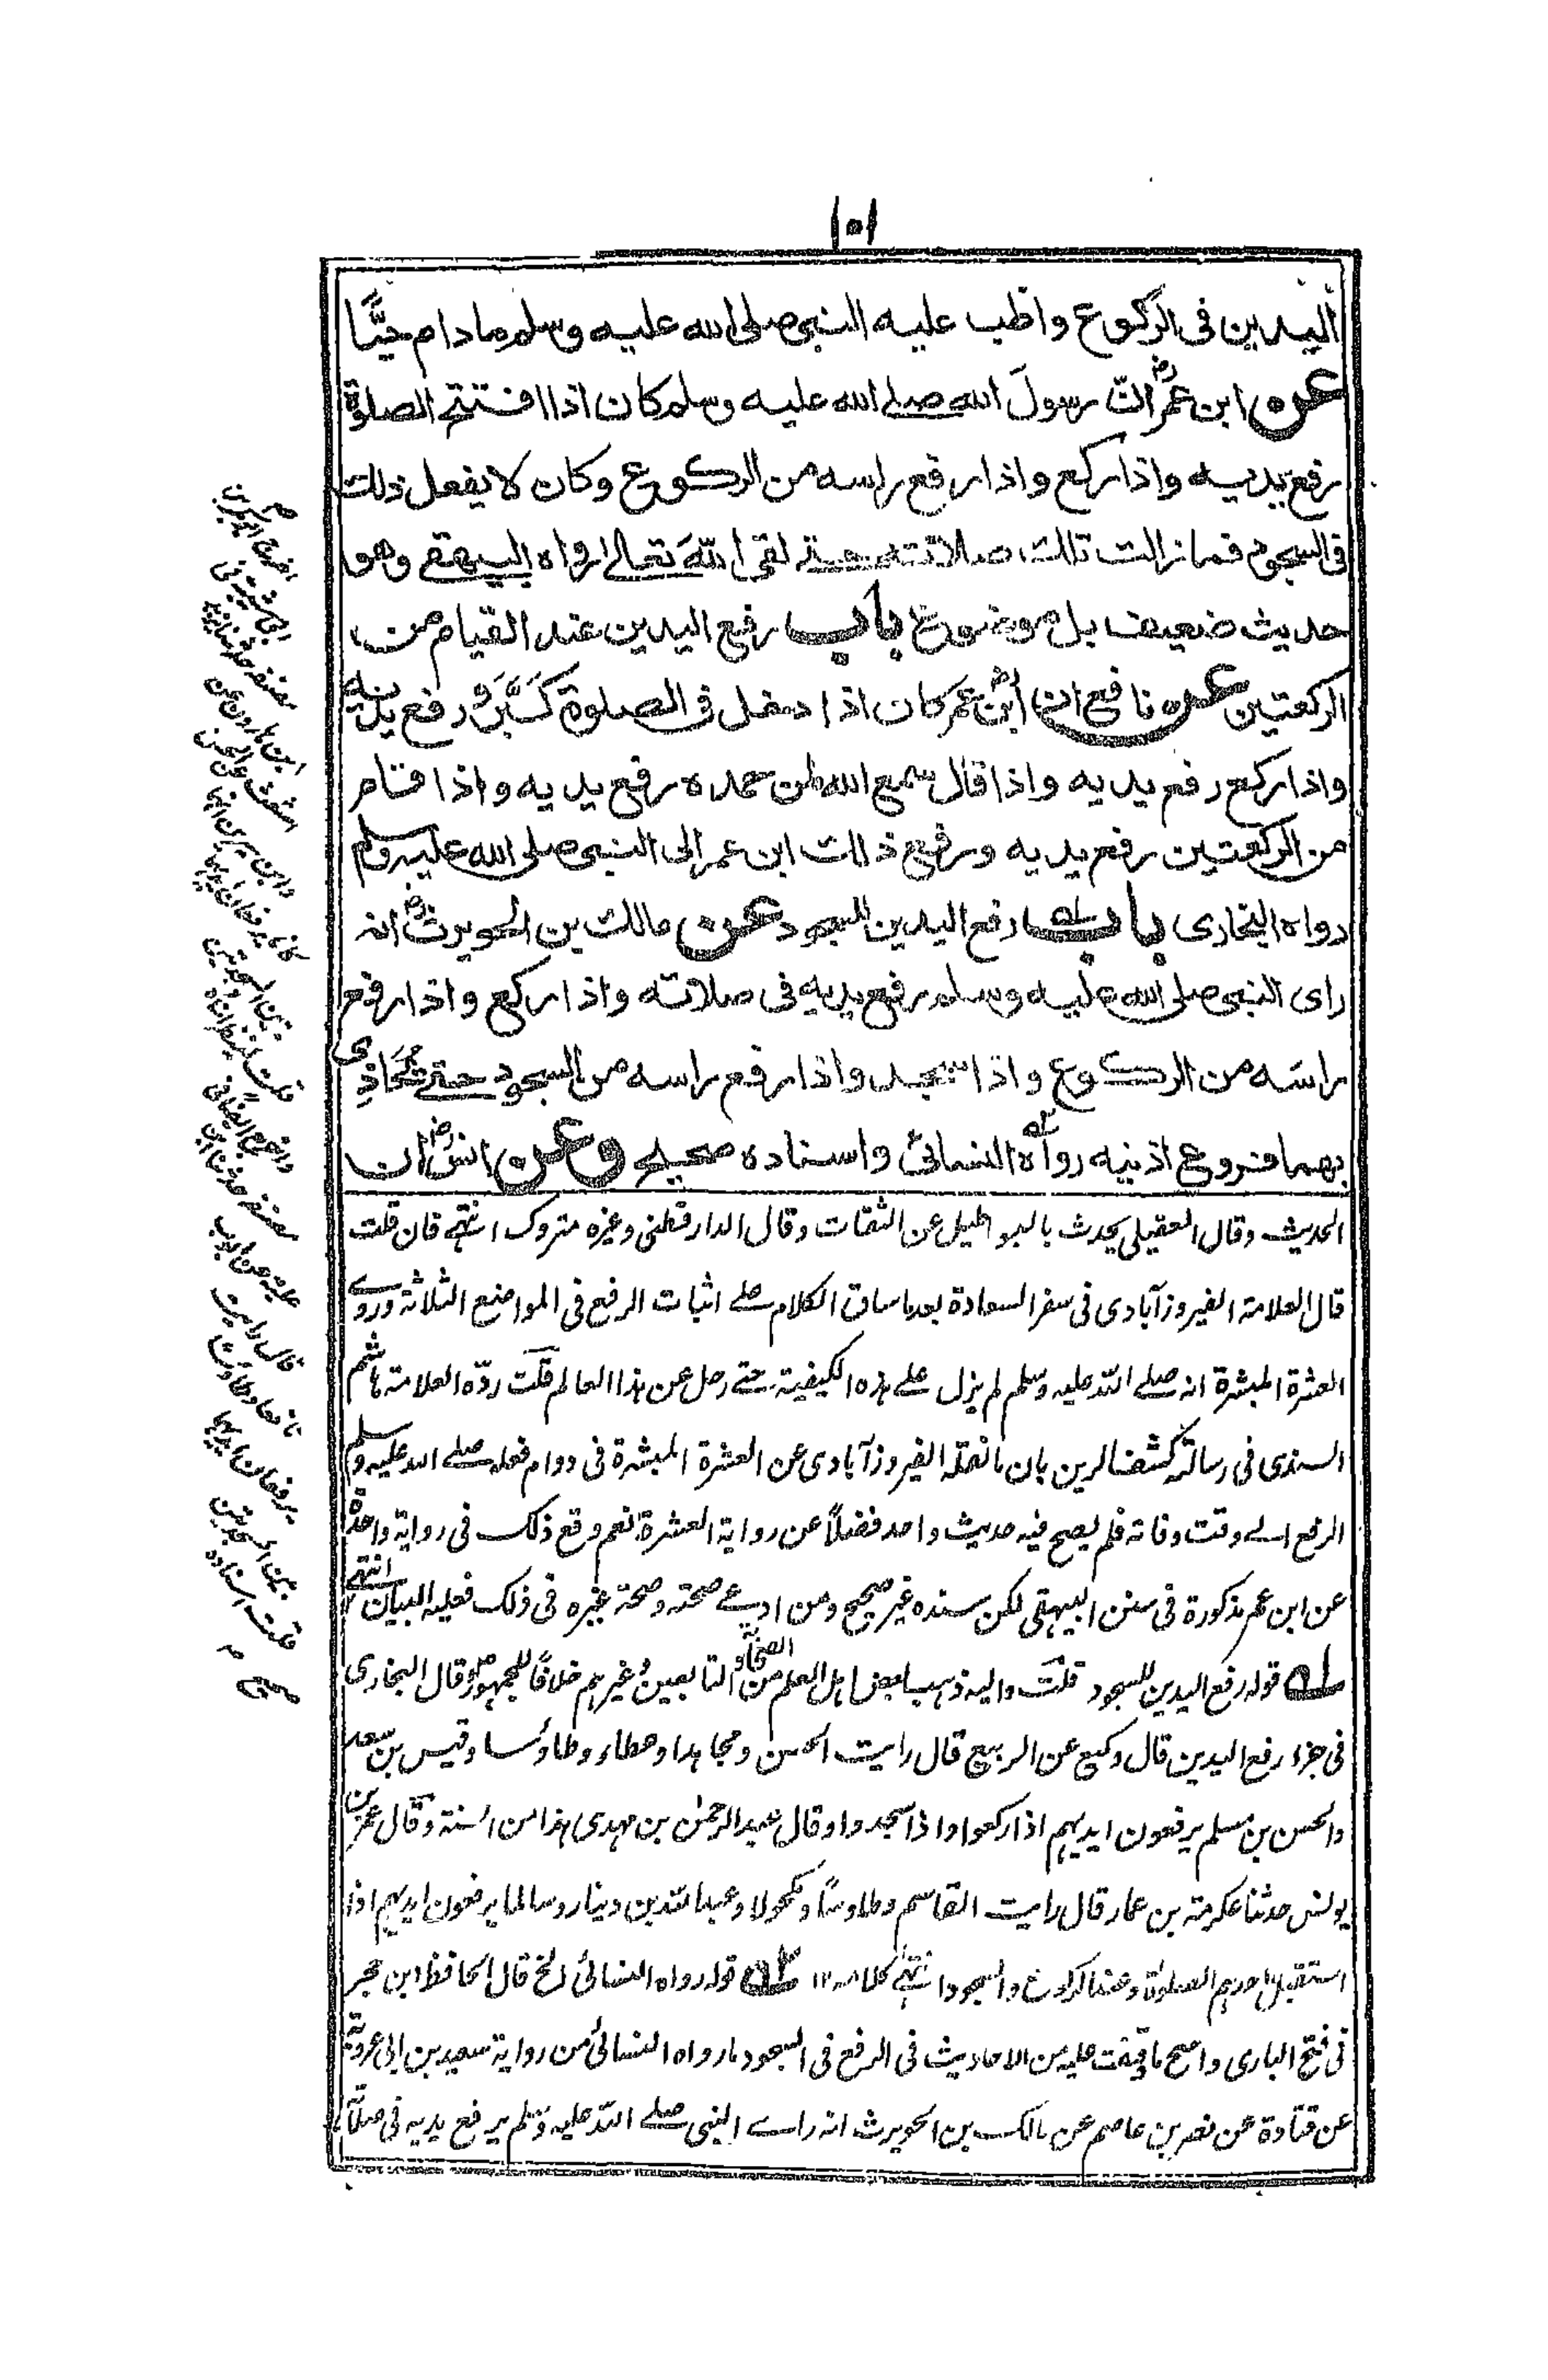 ١٥١
اليدين فى الركوع واظب عليه النبى صلى الله عليه وسلم ما دام حيًّا
عن ابن عمرؓ انّ رسولَ الله صلے الله عليه وسلم كان اذا افتتح الصلوة
رفع يديه واذا ركع واذا رفع راسه من الركوع وكان لا يفعل ذلك
فى السجود فما زالت تلك صلاته حتے لقى اللّٰهَ تعالےٰ رواه البيهقے وهو
حديث ضعيف بل موضوع باب رفع اليدين عند القيام من
الركعتين عن نافع انّ ابنؓ عمر كان اذا دخل فى الصلوة كَبَّرَ و رفع يديه
واذا ركع رفع يديه واذا قال سمع الله لمن حمده رفع يديه واذا قام
من الركعتين رفع يديه ورفع ذلك ابن عمر الى النبى صلى الله عليه وسلم
رواه البخارى باب رفع اليدين للسجود عن مالك بن الحويرثؓ انه
راى النبى صلى الله عليه وسلم رفع يديه فى صلاته واذا ركع واذا رفع
راسَه من الركوع واذا سجد واذا رفع راسه من السجود حتے يُحَاذِى
بهما فروع اذنيه رواه النسائى واسناده صحيح وعن انسؓ ان
الحديث وقال العقيلى يحدث بالبواطيل عن الثقات وقال الدارقطنى وغيره متروك انتهے فان قلت
قال العلامة الفيروزآبادى فى سفر السعادة بعد ما ساق الكلام علے اثبات الرفع فى المواضع الثلاثة وروے
العشرة المبشرة انه صلے اللّٰه عليه وسلم لم يزل علے هذه الكيفية حتے رحل عن هذا العالم قلت ردّه العلامة هاشم
السندى فى رسالته كشف الرين بان ما نقله الفيروزآبادى عن العشرة المبشرة فى دوام فعله صلے الله عليه وسلم
الرفع الے وقت وفاته فلم يصح فيه حديث واحد فضلاً عن رواية العشرة نعم وقع ذلك فى رواية واحدة
عن ابن عمر مذكورة فى سنن البيهقى لكن سنده غير صحيح ومن ادعے صحته وصحة غيره فى ذلك فعليه البيان انتهے ١٢
له قوله رفع اليدين للسجود قلت واليه ذهب بعض اهل العلم من الصحابة و التابعين وغيرهم خلافًا للجمهور وقال البخارى
فى جزء رفع اليدين قال وكيع عن الربيع قال رايت الحسن ومجاهدا وعطاء وطاؤسا وقيس بن سعد
والحسن بن مسلم يرفعون ايديهم اذا ركعوا واذا سجدوا وقال عبد الرحمٰن بن مهدى هذا من السنة وقال عمر بن
يونس حدثنا عكرمة بن عمار قال رايت القاسم وطاوسًا ومكحولا وعبد اللّٰه بن دينار وسالما يرفعون ايديهم اذا
استقبل احدهم الصلوٰة وعند الركوع والسجود انتهٰے كلامه ١٢ قوله رواه النسائى الخ قال الحافظ ابن حجر
فى فتح البارى واصح ما وقفت عليه من الاحاديث فى الرفع فى السجود ما رواه النسائى من رواية سعيد بن ابى عروبة
عن قتادة عن نصر بن عاصم عن مالك بن الحويرث انه راے النبى صلے اللّٰه عليه وسلم يرفع يديه فى صلاته
اخرج ابو بكر بن
ابى شيبة فى
مصنفه حدثنا يزيد
ابن هارون عن
اشعث عن الحسن
وابن سيرين انهما
كانا يرفعان ايديهما
بين السجدتين
قلت
واخرج ايضا فى
مصنفه حدثنا ابن
علية عن ايوب
قال رايت
نافعا وطاؤسا
يرفعان ايديهما
بين السجدتين
قلت اسناده
صحيح